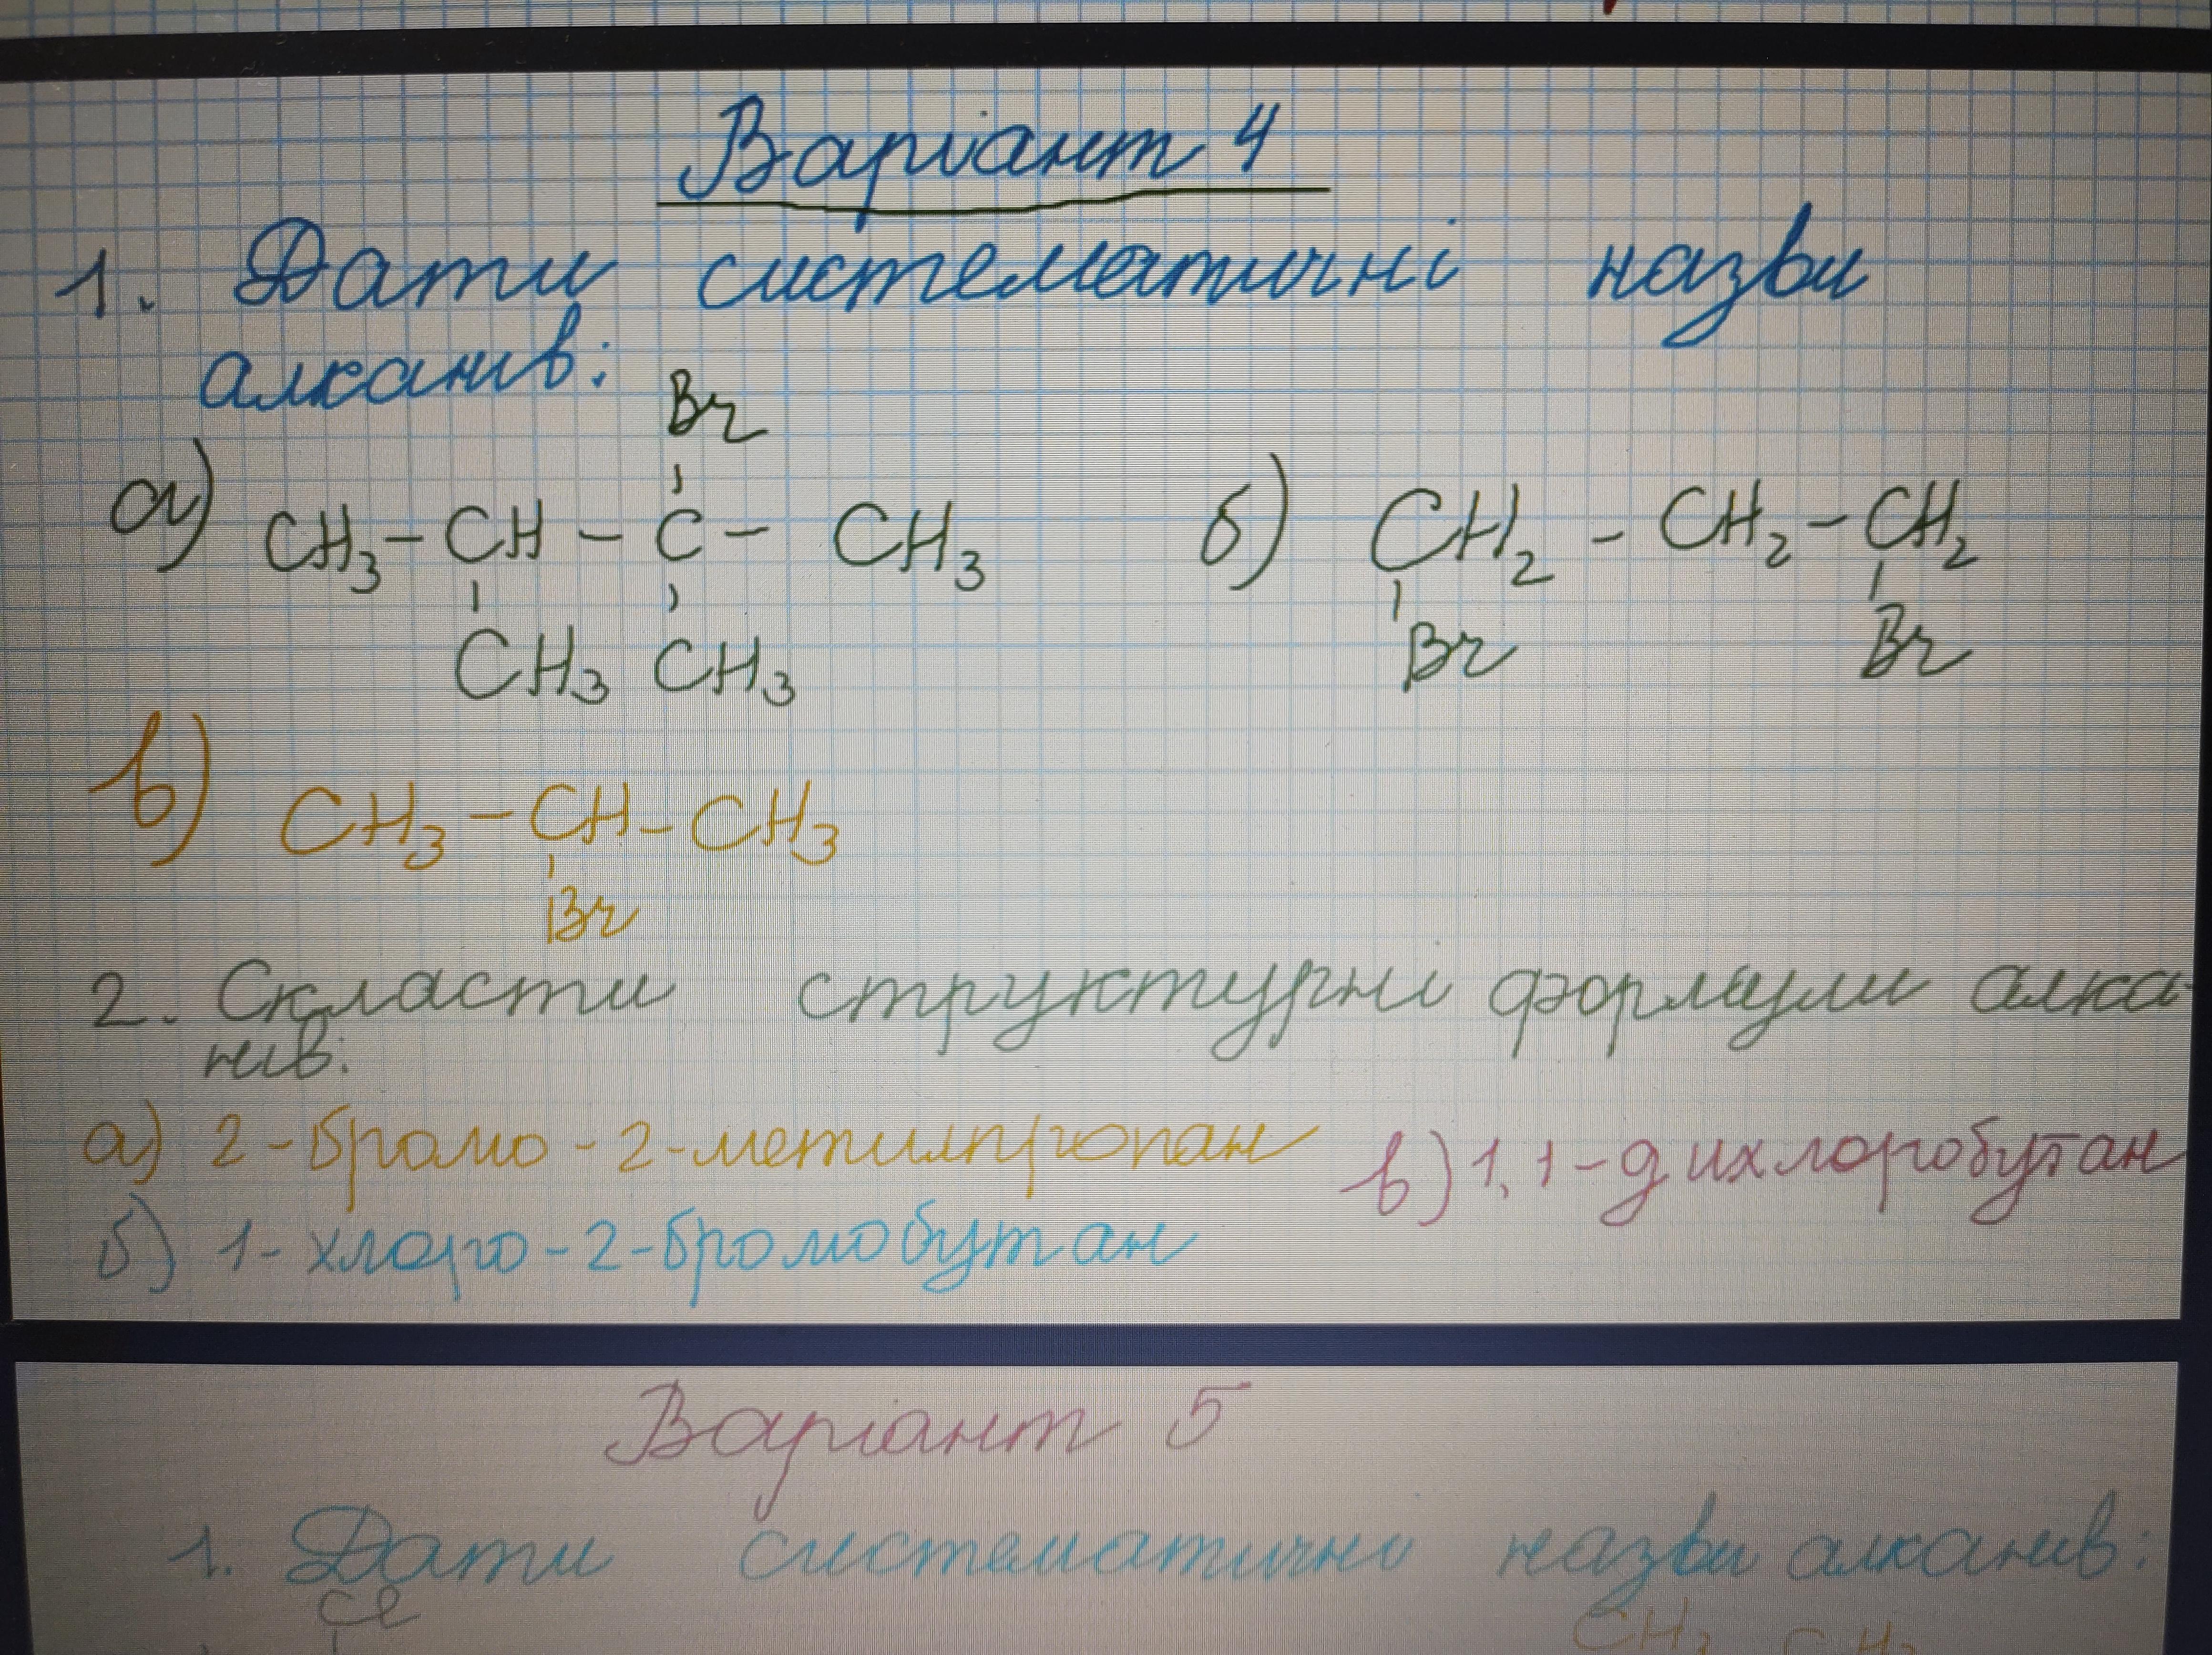 Варіант 4
1. Дати систематичні назви
алканів:
Br
а) CH₃ – CH – C – CH₃ б) CH₂ – CH₂ – CH₂
CH₃ CH₃ Br Br
в) CH₃ – CH – CH₃
Br
2. Скласти структурні формули алка-
нів:
а) 2-бромо-2-метилпропан в) 1,1-дихлоробутан
б) 1-хлоро-2-бромобутан
Варіант 5
1. Дати систематичні назви алканів:
Cl
CH₃ CH₃